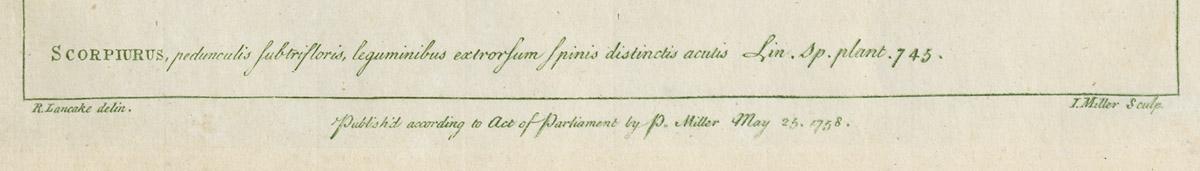 SCORPIURUS, pedunculis ſubtrifloris, leguminibus extrorſum ſpinis distinctis acutis Lin. Sp. plant. 745.
R. Lancake delin.
I. Miller Sculp.
Publish'd according to Act of Parliament by P. Miller May 25. 1758.